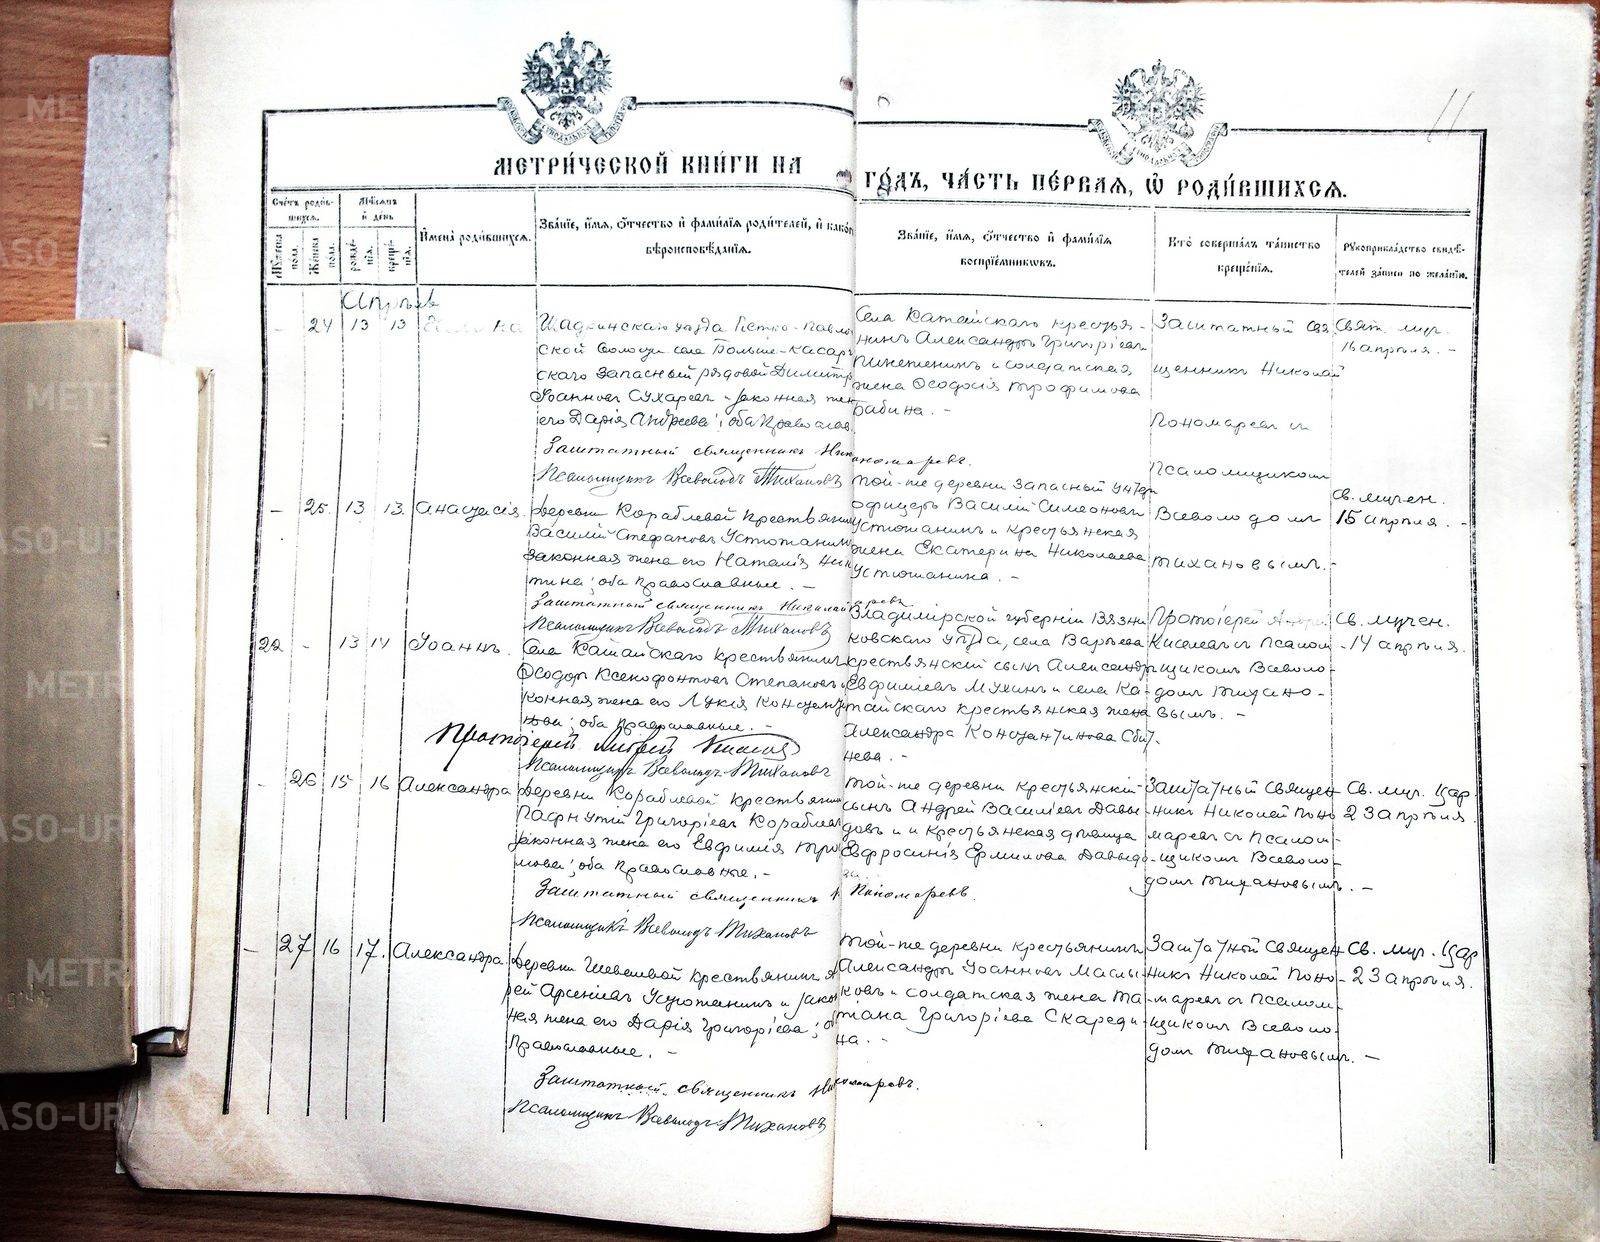 МЕТРИ́ЧЕСКОЙ КНИ́ГИ НА
ГО́ДЪ, ЧА́СТЬ ПЕ́РВАЯ, Ѡ РОДИ́ВШИХСЯ.
Сче́тъ роди́в-
шихся.
Мѣ́сяцъ
и де́нь
Му́жеска
пола.
Же́нска
пола.
рожде́-
нія.
креще́-
нія.
И҆мена̀ роди́вшихся.
Зва́ніе, и҆́мя, ѻ҆́тчество и҆ фами́лія роди́телей, и҆ како́гѡ
вѣроисповѣ́данія.
Зва́ніе, и҆́мя, ѻ҆́тчество и҆ фами́лія
воспріе́мниковъ.
Кто̀ соверша́лъ та́инство
креще́нія.
Рукоприкла́дство свидѣ́-
телей за́писи по жела́нію.
11
Апрѣль
- 24 13 13
Шадринскаго уѣзда Петро-Павлов
ской волости села Больше-Касар
скаго запасный рядовой Димитрій
Іоанновъ Сухаревъ и законная жена
его Дарія Андреева; оба православ.
Заштатный священникъ Ник
Псаломщикъ Всеволодъ Тихановъ
Села Катайскаго крестья-
нинъ Александръ Григоріевъ
и солдатская
жена Ѳеодосія Трофимова
Бабина. -
Пономаревъ.
Заштатный свя
щенникъ Николай
Пономаревъ съ
псаломщикомъ
Всеволодомъ
Тихановымъ. -
Свят. муч.
16 апрѣля. -
- 25. 13 13. Анастасія.
Деревни Кораблевой крестьянинъ
Василій Стефановъ Устюжанинъ
законная жена его Наталія
тина; оба православные. -
Заштатный священникъ Николай
Псаломщикъ Всеволодъ Тихановъ
Той-же деревни запасный унтеръ
офицеръ Василій Симеоновъ
Устюжанинъ и крестьянская
жена Екатерина Николаева
Устюжанина. -
Св. мучен.
15 апрѣля. -
22 - 13 14 Іоаннъ.
Села Катайскаго крестьянинъ
Ѳеодоръ Ксенофонтовъ Степановъ и
конная жена его Лукія Констант
нова; оба православные. -
Протоіерей Андрей Киселевъ
Псаломщикъ Всеволодъ Тихановъ
Владимірской губерніи Вязни
ковскаго уѣзда, села
крестьянскій сынъ Александръ
Евфиміевъ Мухинъ и села Ка-
тайскаго крестьянская жена
Александра Константинова Сби
нева. -
Протоіерей Андрей
Киселевъ съ псалом
щикомъ Всеволо-
домъ Тихано-
вымъ. -
Св. мучен.
14 апрѣля.
- 26 15 16 Александра
Деревни Кораблевой крестьянинъ
Пафнутій Григоріевъ Кораблевъ
законная жена его Евфимія Тро
мова; оба православные. -
Заштатный священникъ Н Пономаревъ.
Псаломщикъ Всеволодъ Тихановъ
Той-же деревни крестьянскій
сынъ Андрей Василіевъ Давы
довъ и крестьянская дѣвица
Евфросинія Ермилова Давыдо
Заштатный священ
никъ Николай Поно
маревъ съ псалом-
щикомъ Всеволо-
домъ Тихановымъ. -
Св. муч. Цар.
23 апрѣля.
- 27 16 17. Александра.
Деревни Шевелевой крестьянинъ А
рей Арсеніевъ Устюжанинъ и закон
ная жена его Дарія Григоріева; об
православные. -
Заштатный священникъ Н номаревъ.
Псаломщикъ Всеволодъ Тихановъ
Той-же деревни крестьянинъ
Александръ Іоанновъ Маслы
ковъ и солдатская жена Та
тіана Григоріева Скареди-
на. -
Заштатный священ
никъ Николай Поно-
маревъ съ псалом-
щикомъ Всеволо-
домъ Тихановымъ. -
Св. муч. Цар
23 апрѣля.